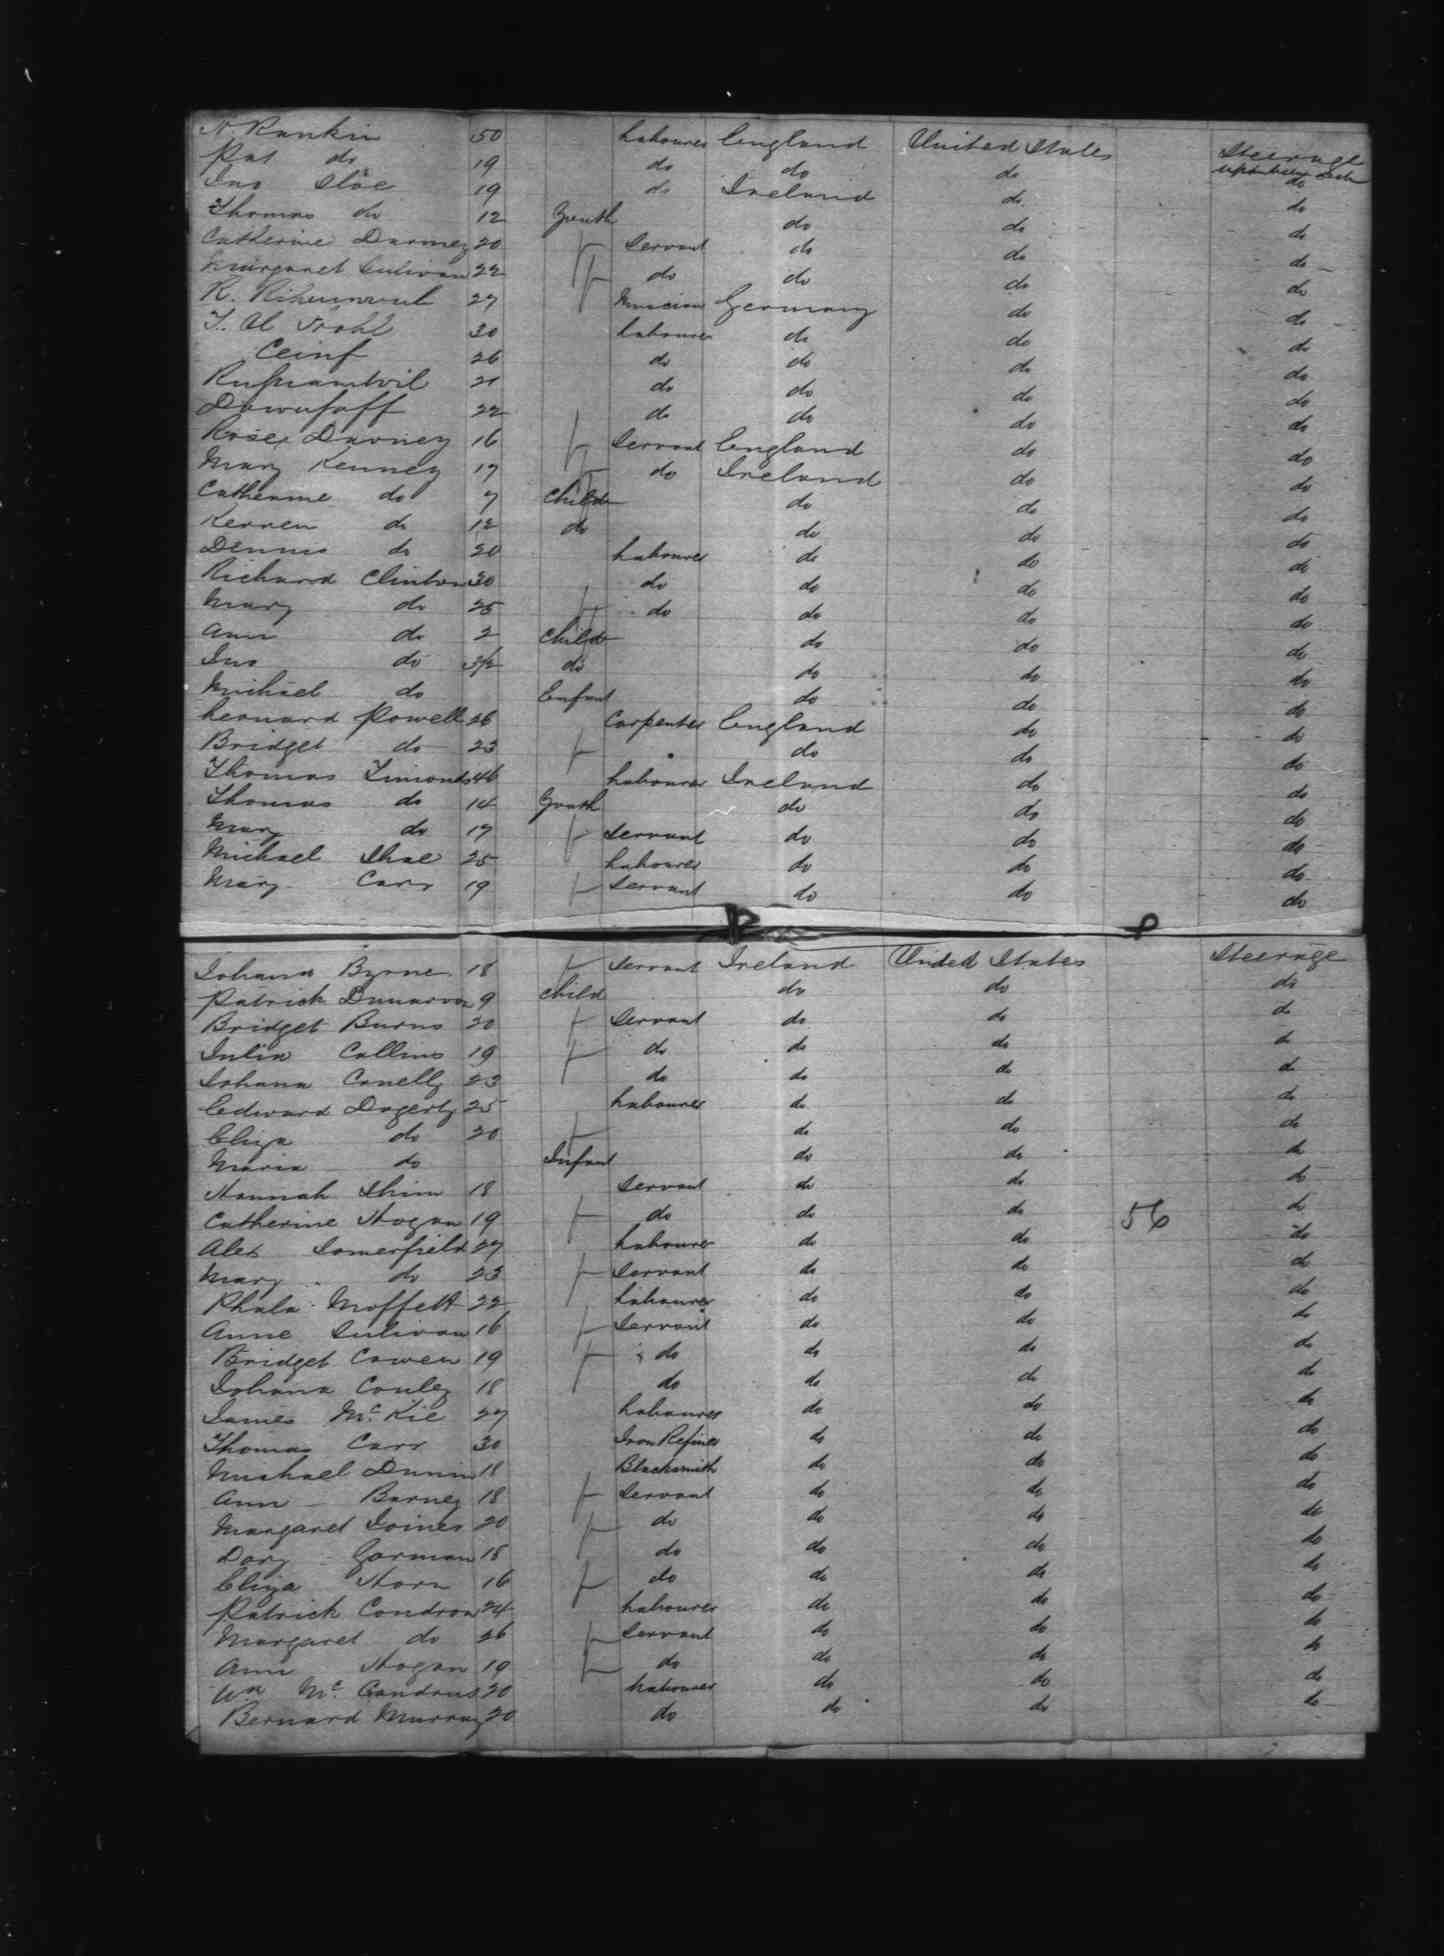 N. Rankin 50 Labourer England United States Steerage
Pat do 19 do do do do
Jno Sloe 19 do Ireland do do
Thomas do 12 Youth do do do
Catherine Darmey 20 F Servant do do do
Margaret Sulivan 22 F do do do do
R. 27 Musician Germany do do
30 Labourer do do do
Ceinf 26 do do do do
21 do do do do
22 do do do do
Rose Darney 16 F Servant England do do
Mary Kenney 17 F do Ireland do do
Catherine do 7 Child do do do
Kerren do 12 do do do do
Dennis do 20 Labourer do do do
Richard Clinton 30 do do do do
Mary do 25 F do do do do
Ann do 2 Child do do do
Jno do 3/12 do do do do
Michael do Enfant do do do
Leonard Powell 26 Carpenter England do do
Bridget do 23 F do do do
Thomas Timonds 46 Labourer Ireland do do
Thomas do 14 Youth do do do
Mary do 17 F Servant do do do
Michael Shae 25 Labourer do do do
Mary Carr 19 F Servant do do do
Johana Byrne 18 F Servant Ireland United States Steerage
Patrick 9 Child do do do
Bridget Burns 20 F Servant do do do
Julia Collins 19 F do do do do
Johana Conelly 23 do do do do
Edward Dogerty 25 Labourer do do do
Eliza do 20 F do do do
Maria do Infant do do do
Hannah Shim 18 Servant do do do
Catherine Hogan 19 F do do do 56 do
Alex Somerfield 27 Labourer do do do
Mary do 23 F Servant do do do
Moffett 22 Labourer do do do
Anne Sulivan 16 F Servant do do do
Bridget Cowen 19 F do do do do
Johana Conley 18 do do do do
James McKie 27 Labourer do do do
Thomas Carr 30 Iron Refiner do do do
Michael Dunin 18 Blacksmith do do do
Ann Barney 18 F Servant do do do
Margaret Joines 20 F do do do do
Dory Gorman 18 do do do do
Eliza Horn 16 F do do do do
Patrick Condron 24 Labourer do do do
Margaret do 26 F Servant do do do
Ann Hogan 19 F do do do do
Wm Mc Candrus 20 Labourer do do do
Bernard Murray 20 do do do do